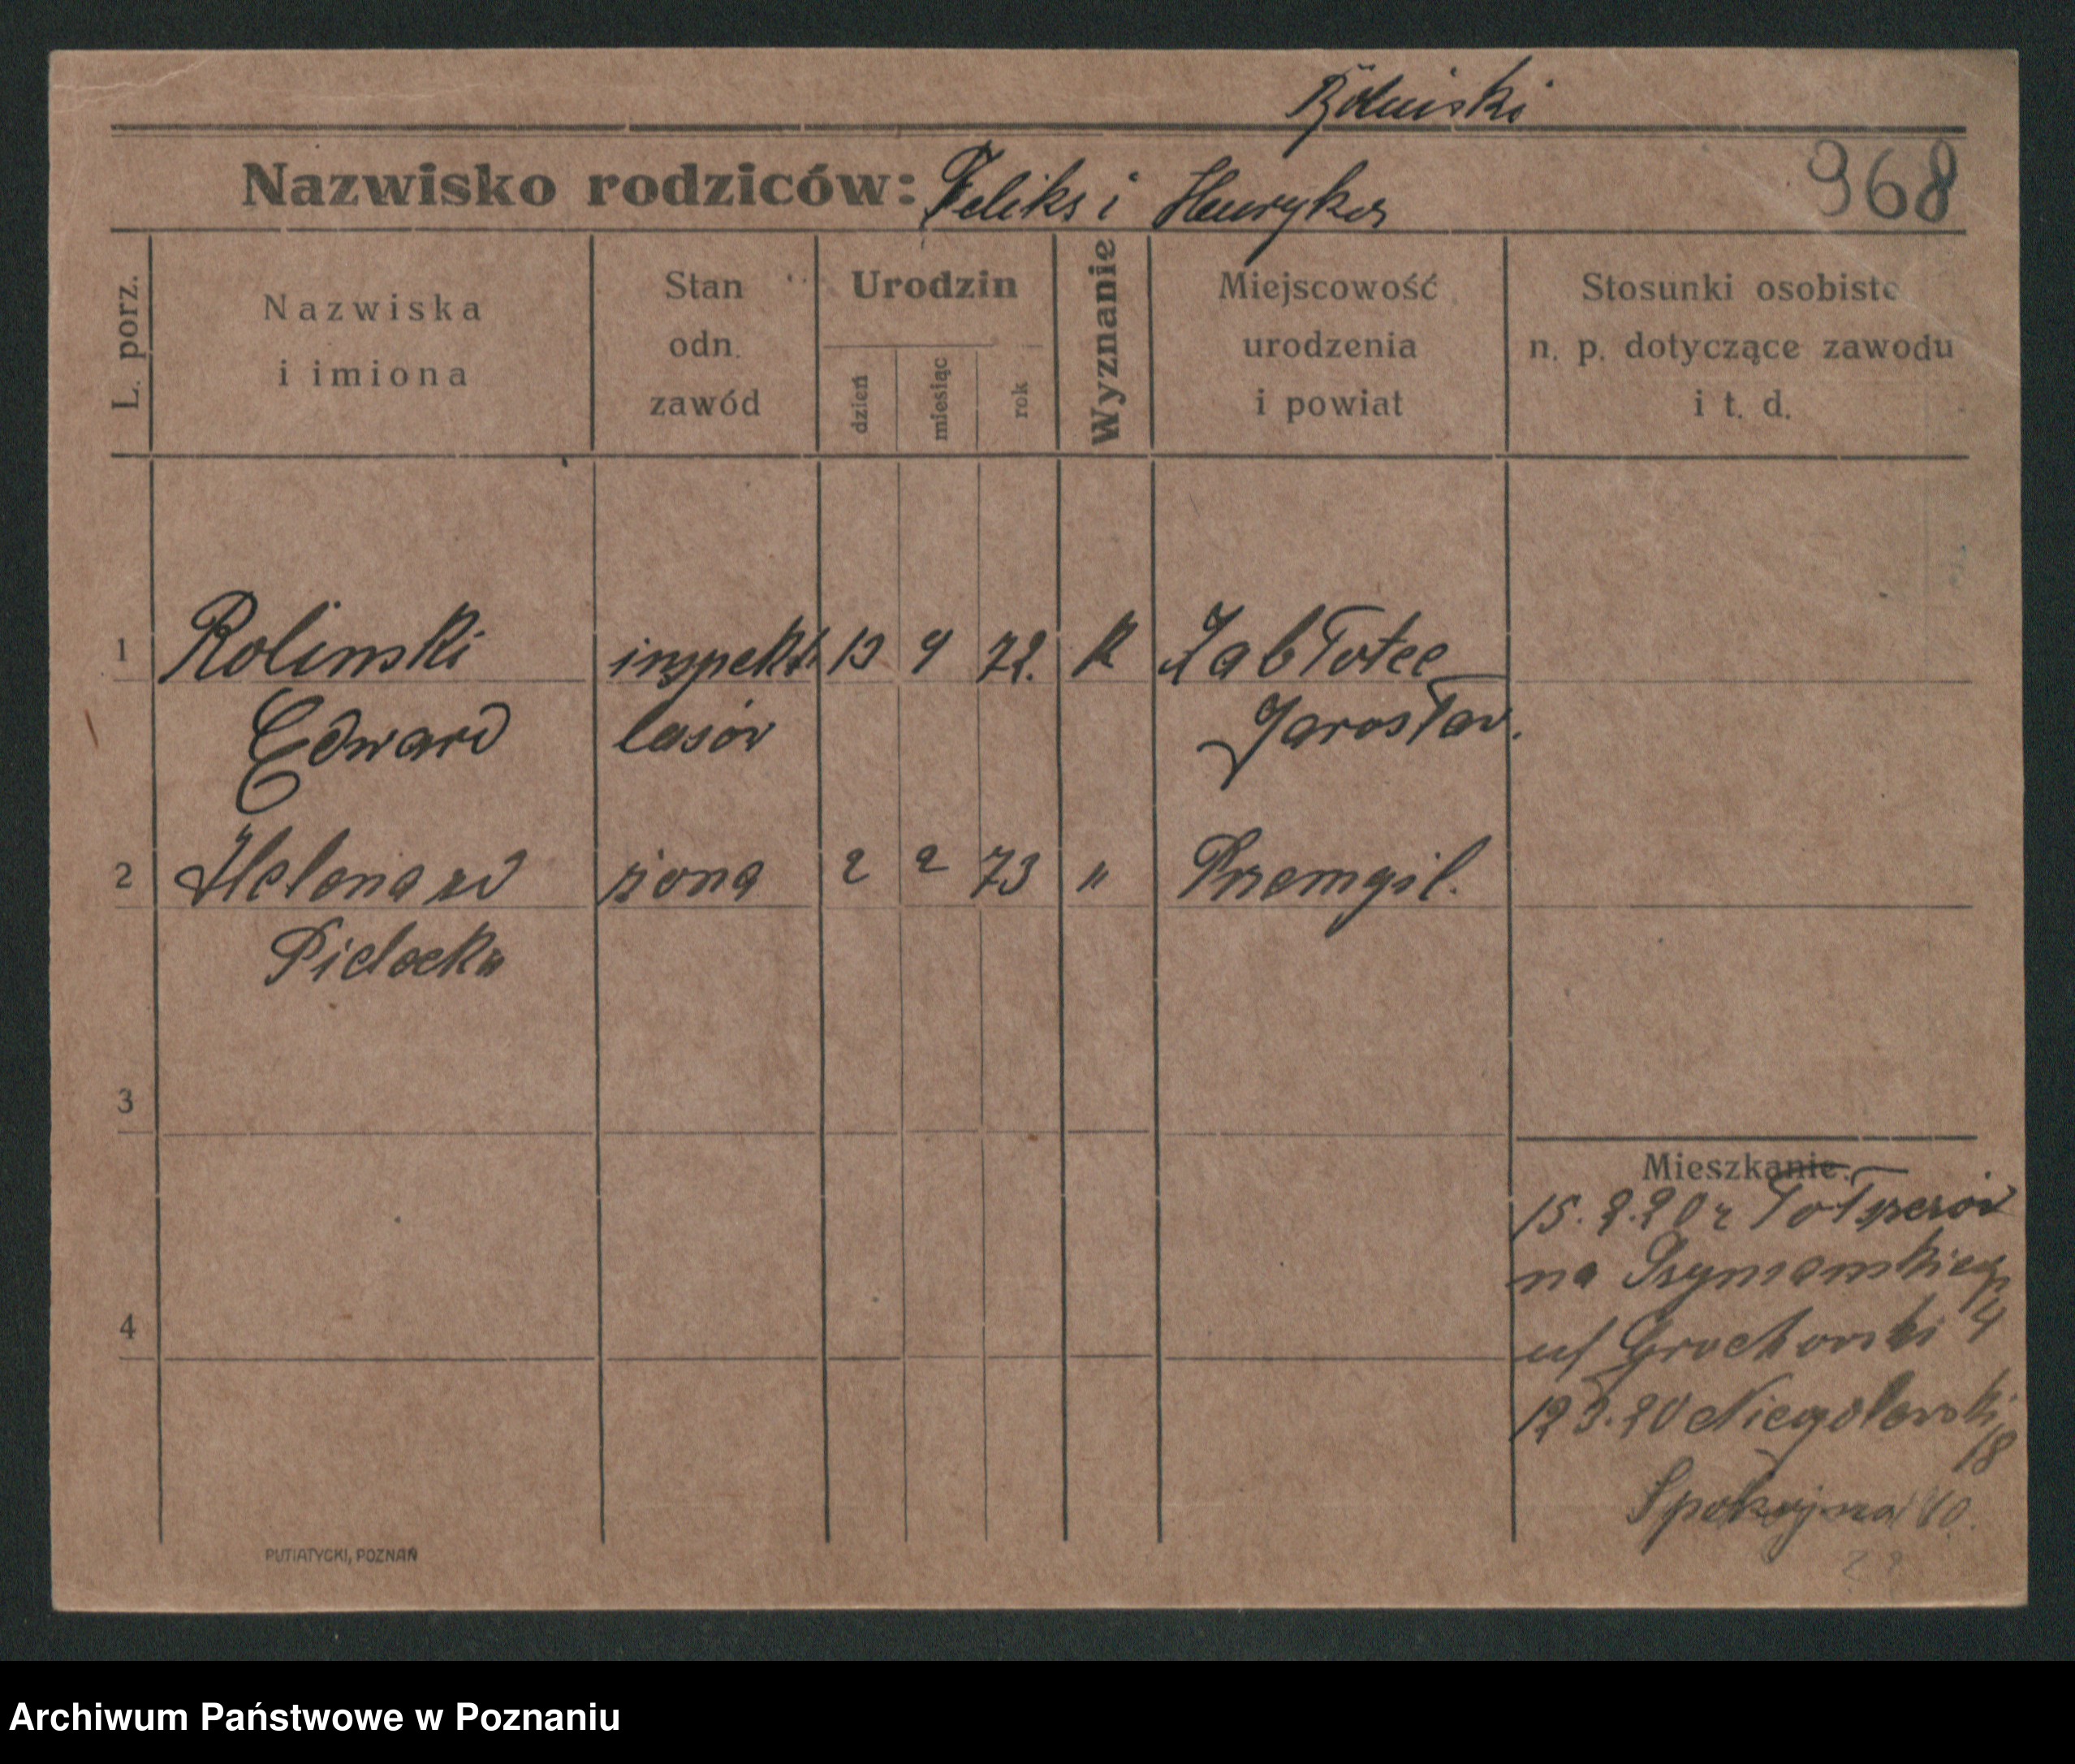 Nazwisko rodziców: Feliks i Henryka
968
L. porz.
Nazwiska
i imiona
Stan
odn.
zawód
Urodzin
dzień
miesiąc
rok
Wyznanie
Miejscowość
urodzenia
i powiat
Stosunki osobiste
n. p. dotyczące zawodu
i t. d.
1 Rolinski inspekt. 13 9 72. K Zabłotce
Edward lasów Jarosław.
2 Helena zd żona 2 2 73 " Przemyśl.
Pielecka
3
Mieszkanie.
15. 2. 20 z
na
4
u/ Grochowski 4
12 3. 20 Niegolewski
18
Spokojna
PUTIATYCKI, POZNAŃ
Archiwum Państwowe w Poznaniu